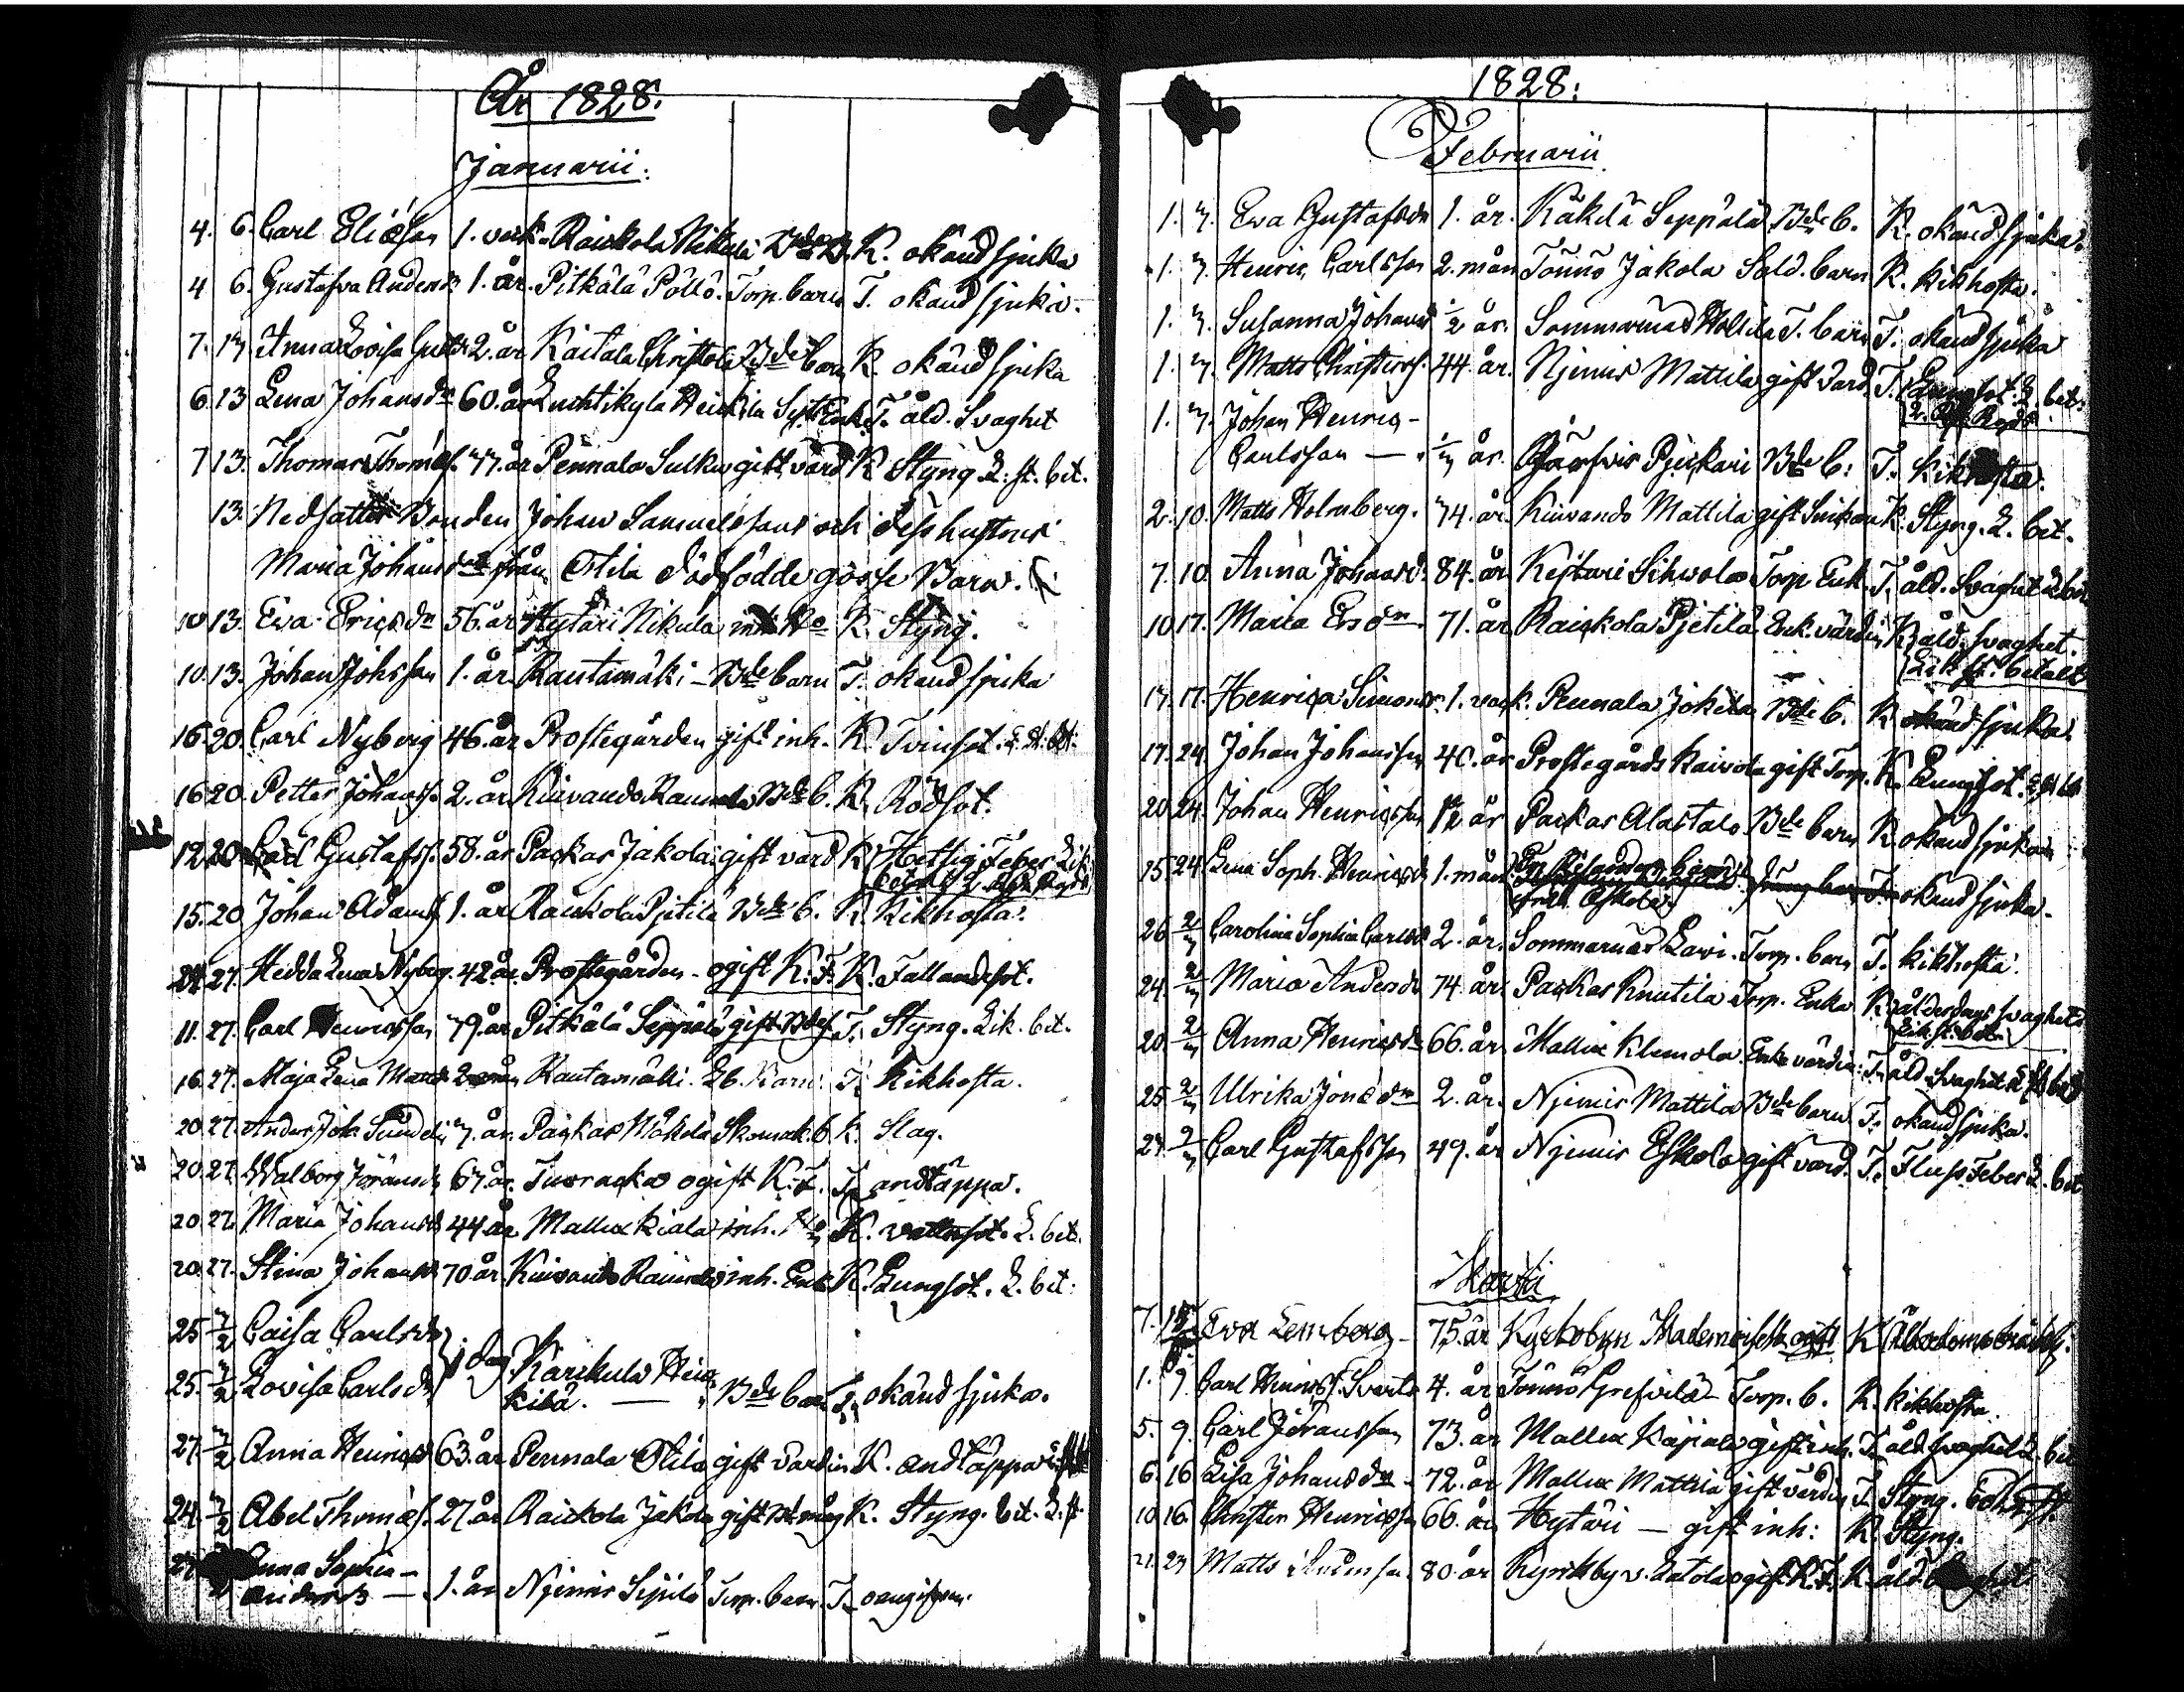 År 1828.
Januarii.
4. 6. Carl Eliæson 1. veck. Raiskola Nikula Bde B. K. okänd sjuka
4 6. Gustafva Andersd. 1. år. Pitkälä Pöllö. Torp. barn T. okänd sjuka.
7. 13 Anna Lovisa Gustd. 2. år Kaitala Christola Bde barn K. okänd sjuka
6. 13 Lena Johansdr 60. år Luchtikylä Heickilä Syt. Enk. T. åld. Svaghet
7 13. Thomas Thomæs. 77. år Pennala Sulku gift värd K. Styng L. st. bet.
13. Nedsatter Bonden Johan Samuelssons och dess hustrus
Maria Johansdotter från Otila dödfödde gosse Barn.
10 13. Eva Ericsdr 56. år Hytäri Nikula inh. K. Styng.
10. 13. Johan Johsson 1. år Rautamäki - Bde barn T. okänd sjuka
16. 20. Carl Nyberg 46. år Prostegården gift inh. K. Tvinsot. L. st. bt.
16 20. Petter Johanss. 2. år Kiuvando Raunela Bde b. K. Rödsot.
12 20 Carl Gustafss. 58. år Packas Jakola gift värd K. Hettsig Feber Lik
15. 20 Johan Adams. 1. år Raiskola Pjetilä Bde b. K. Kikhosta.
24. 27. Hedda Lena Nyberg. 42. år. Prostegården - ogift K. F. K. Fallandesot.
11. 27. Carl Henricsson 79. år Pitkälä Seppälä gift Bdef T. Styng. Lik. bet.
16. 27. Maja Lena Matsd. 2 mån Rautamäki. Lb. Barn. T. Kikhosta.
20. 27. Anders Joh. Sundelin 7. år. Packas Mäkelä Skomak. b. K. Slag.
20. 27. Walborg Göransd. 67. år. ogift K. F. T. andtäppa.
20. 27. Maria Johansd. 44 år. Mallua Kiala inh. K. vattusot. L. bet.
20. 27. Stina Johansd. 70 år. Kiuvando Raunela inh. Enk. K. Lungsot. L. bet.
25 3/2 Caisa Carlsdr } 1 dag Karskula Heic-
25. 3/2 Lovisa Carlsdr kilä. — Bde barn T. okänd sjuka.
27. 3/2 Anna Henricsd. 63. år Pennala Otila gift värdin K. andtäppa
24. 3/2 Abel Thomæs. 27. år Raiskola Jakola gift måg K. Styng. bet. L. st.
27. Anna Sophia
Andersd. — 1. år Njemis Sipilä Torp. barn. T. oangifven.
1828:
Februarii
1. 3. Eva Gustafsdr 1. år. Käkelä Seppälä Bde b. K. okänd sjuka.
1. 3. Henric Carlsson 2. mån Tönnö Jakola Sold. barn K. Kikhosta.
1. 3. Susanna Johansd. 1/2 år. Sommarnäs T. barn T. okänd sjuka
1. 3. Matts Christerss. 44. år. Njemis Mattila gift värd. T. Lungsot. L. bet.
1. 3. Johan Henric-
Carlsson — år. Pjickari Bde b. T. Kikhosta.
2. 10. Matts Holmberg. 74. år. Kiuvando Mattila gift K. Styng. L. bet.
7. 10. Anna Johansd. 84. år Kestari Sihvola Torp Enk. T. åld. Svaghet L bet
10 17. Maria Ersdr 71. år Raiskola Pjetilä Enk. värdin K. åld. svaghet.
Lik st. betalt
17. 17. Henrica Simonsdr. 1. veck. Pennala Jokela Bde b. K. okänd sjuka.
17. 24. Johan Johansson 40. år Prostegårds Kaivola gift Torp. K. Lungsot.
20. 24. Johan Henricsson 1/2 år Packas Alastalo Bde barn K. okänd sjuka
15. 24 Lena Soph. Henricsd. 1. mån okänd sjuka.
26 2/3 Carolina Sophia Carlsd. 2. år. Sommarnäs Lavi. Torp. barn T. kikhosta.
24. 2/3 Maria Andersdr 74. år. Packas Knutila Torp. Enka K. ålderdoms svaghet
Lik st. bet.
20. 2/3 Anna Henricsdr 66. år Mallua Klemola. Enke värdin T. åld. Svaghet L st bet
25 2/3 Ulrika Jonsdr 2. år. Njemis Mattila Bde barn T. okänd sjuka.
27. 2/3 Carl Gustafsson 49. år Njemis Eskola gift värd. T. Fluss Feber L. bet
Martii
7. Eva Lemberg - 75. år Kyrkobyn Mademoiselle ogift K. Ålderdoms bräcklig.
1. 9. Carl Henricss. Svart 4. år Tönnö Grefvilä - Torp. b. K. kikhosta.
5. 9. Carl Göransson 73. år Mallua Käjiala gift inh. T. åld svaghet L. bet
6. 16 Lisa Johansdr 72. år Mallua Mattila gift värdin T. Styng.
10. 16. Christer Henricsson 66. år Hytäri — gift inh: K. Styng.
21. 23 Matts 80. år Kyrkby v. ogift K. F. K. åld.